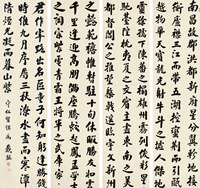 南昌故郡洪都新府星分翼軫地接
衡廬襟三江而帶五湖控蠻荊而引甌
越物華天寶龍光射牛斗之墟人傑地
靈徐孺下陳蕃之榻雄州霧列俊采星
馳臺隍枕夷夏之交賓主盡東南之美
都督閻公之雅望棨戟遙臨宇文新州
之懿範襜帷暫駐十旬休暇勝友如雲
千里逢迎高朋滿座騰蛟起鳳孟學士
之詞宗紫電青霜王將軍之武庫家
君作宰路出名區童子何知躬逢勝餞
時維九月序屬三秋潦水盡而寒潭
清煙光凝而暮山紫